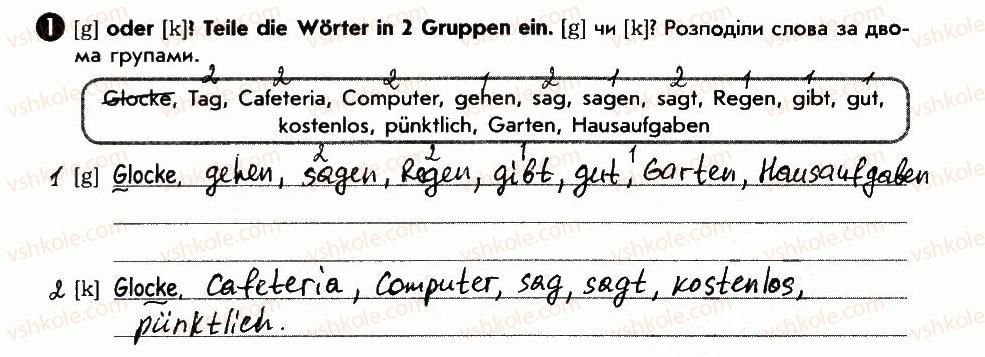 1 [g] oder [k]? Teile die Wörter in 2 Gruppen ein. [g] чи [k]? Розподіли слова за дво-
ма групами.
2 2 2 1 2 1 2 1 1 1
Glocke, Tag, Cafeteria, Computer, gehen, sag, sagen, sagt, Regen, gibt, gut,
kostenlos, pünktlich, Garten, Hausaufgaben
2 2 1 1
1 [g] Glocke, gehen, sagen, Regen, gibt, gut, Garten, Hausaufgaben
2 [k] Glocke, Cafeteria, Computer, sag, sagt, kostenlos,
pünktlich.
vshkole.com